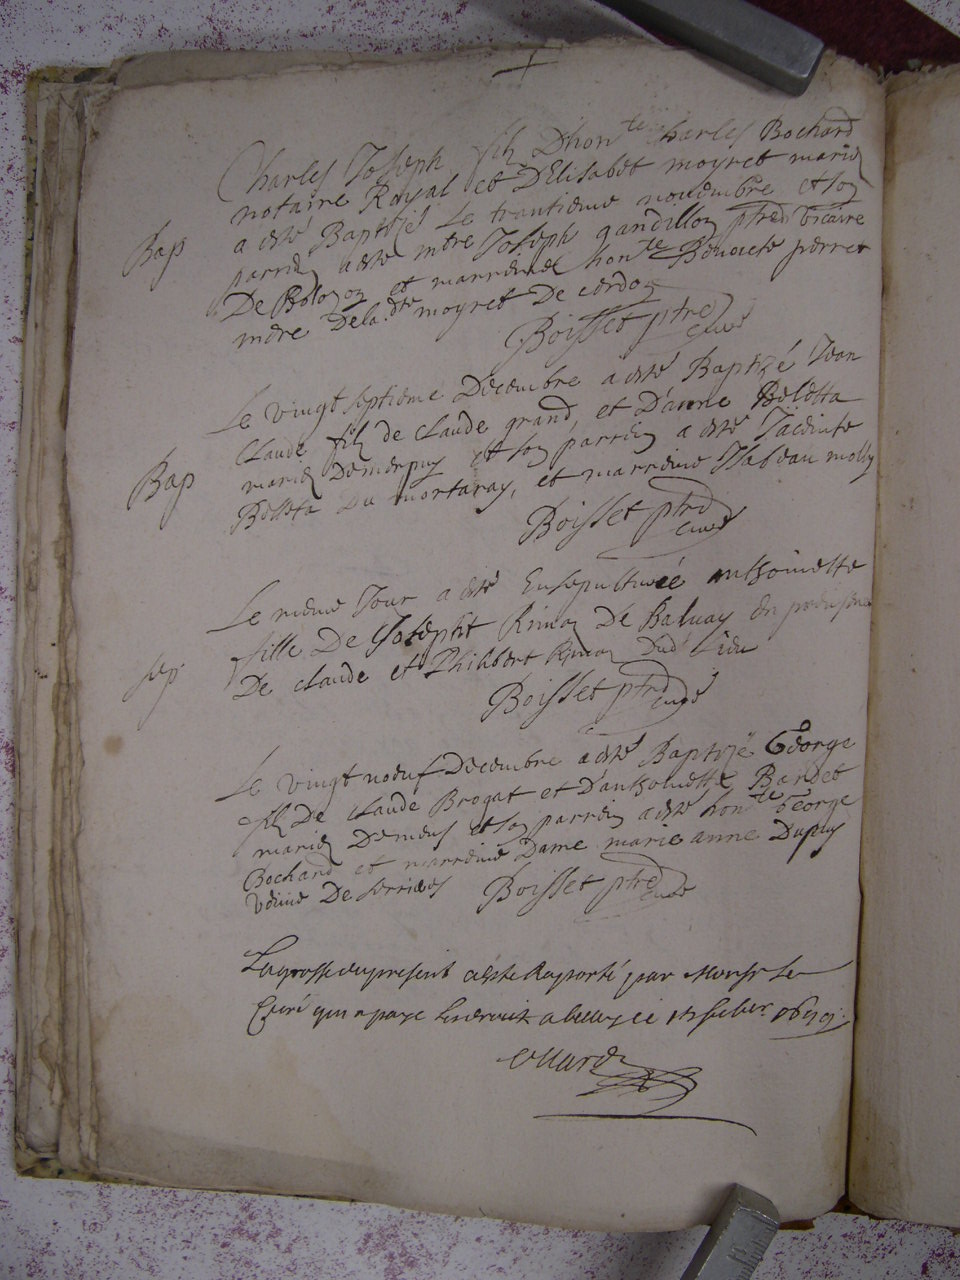 Charles Joseph filz Dhon.te Charles Bochard
notaire Royal et D'Elisabet moyret mariez
Bap
a esté Baptizé Le trantieme novembre et son
parrin a esté m.tre Joseph gandillon ptre vicaire
De Bolozon et marreine hon.te Benoiste perret
mere Dela d.te moyret De cordon
Boisset ptre
curé
Le vingt septieme Decembre a esté Baptizé Jean
Claude filz de Claude grand et D'anne Belotta
Bap
mariez Demerpuy et son parrin a esté Jacinte
Belota du mortaray, et marreine Isabeau molly
Boisset ptre
curé
Le meme Jour a esté Ensepulturée anthoinette
fille De Joseph Rimoz De Balvay en presence
sep
De claude et Philibert Rimoz Dud Lieu
Boisset ptre
curé
Le vingt noeuf Decembre a esté Baptizé George
filz De Claude Brogat et D'anthoinette Bardet
mariez Demeus et son parrin a esté hon.te George
Bochard et marreine Dame marie anne Dupuy
veuve De serrieres Boisset ptre
curé
La grosse du present a esté Raporté par Monsr Le
Curé qui a paye Les droits a belley ce febvr. 1699